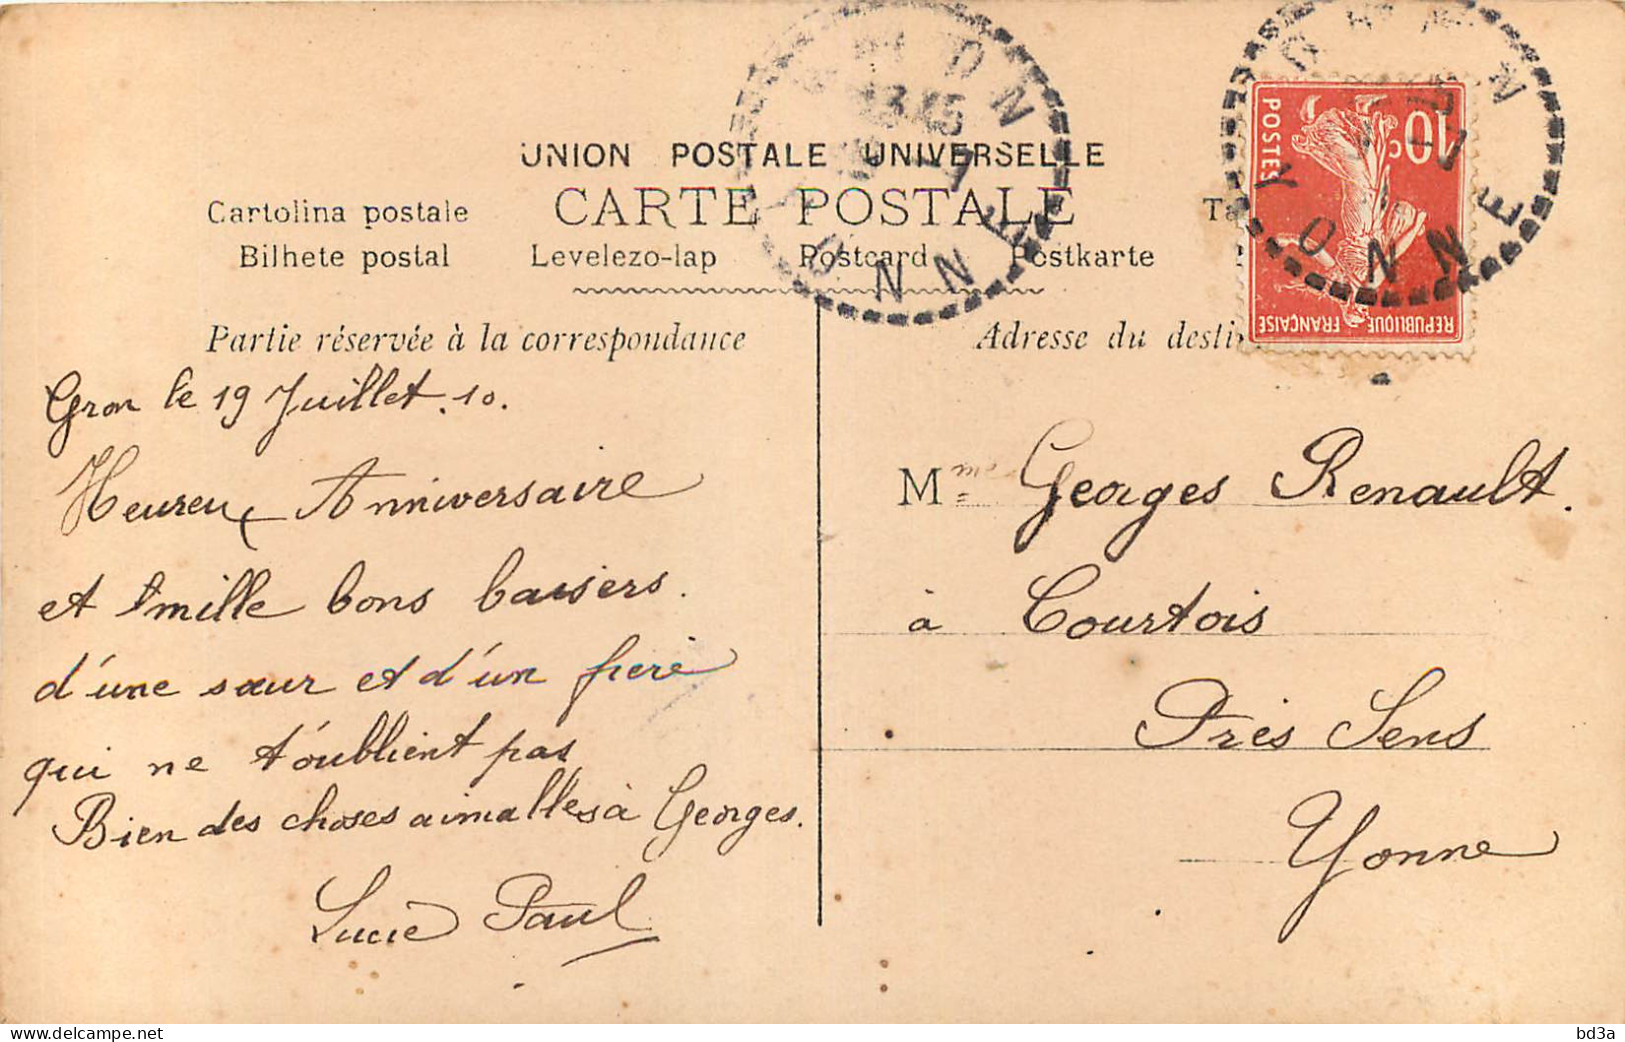 UNION POSTALE UNIVERSELLE
CARTE POSTALE
Cartolina postale
Ta
Bilhete postal Levelezo-lap Postcard Postkarte
Partie réservée à la correspondance
Gron le 19 Juillet. 10.
Heureux Anniversaire
et mille bons baisers.
d'une sœur et d'un frère
qui ne t'oublient pas
Bien des choses aimables à Georges.
Lucie Paul
Adresse du desti
Mme Georges Renault.
à Courtois
Près Sens
Yonne
POSTES
10c
REPUBLIQUE FRANÇAISE
GRON
YONNE
www.delcampe.net
bd3a